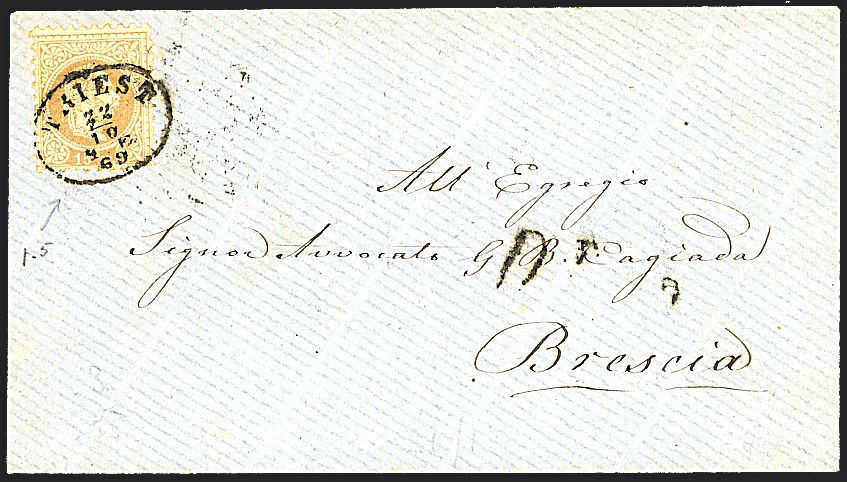 TRIEST
22
10
69
15
1.5
All' Egregio
Signor Avvocato G. B. Cagiada
Brescia